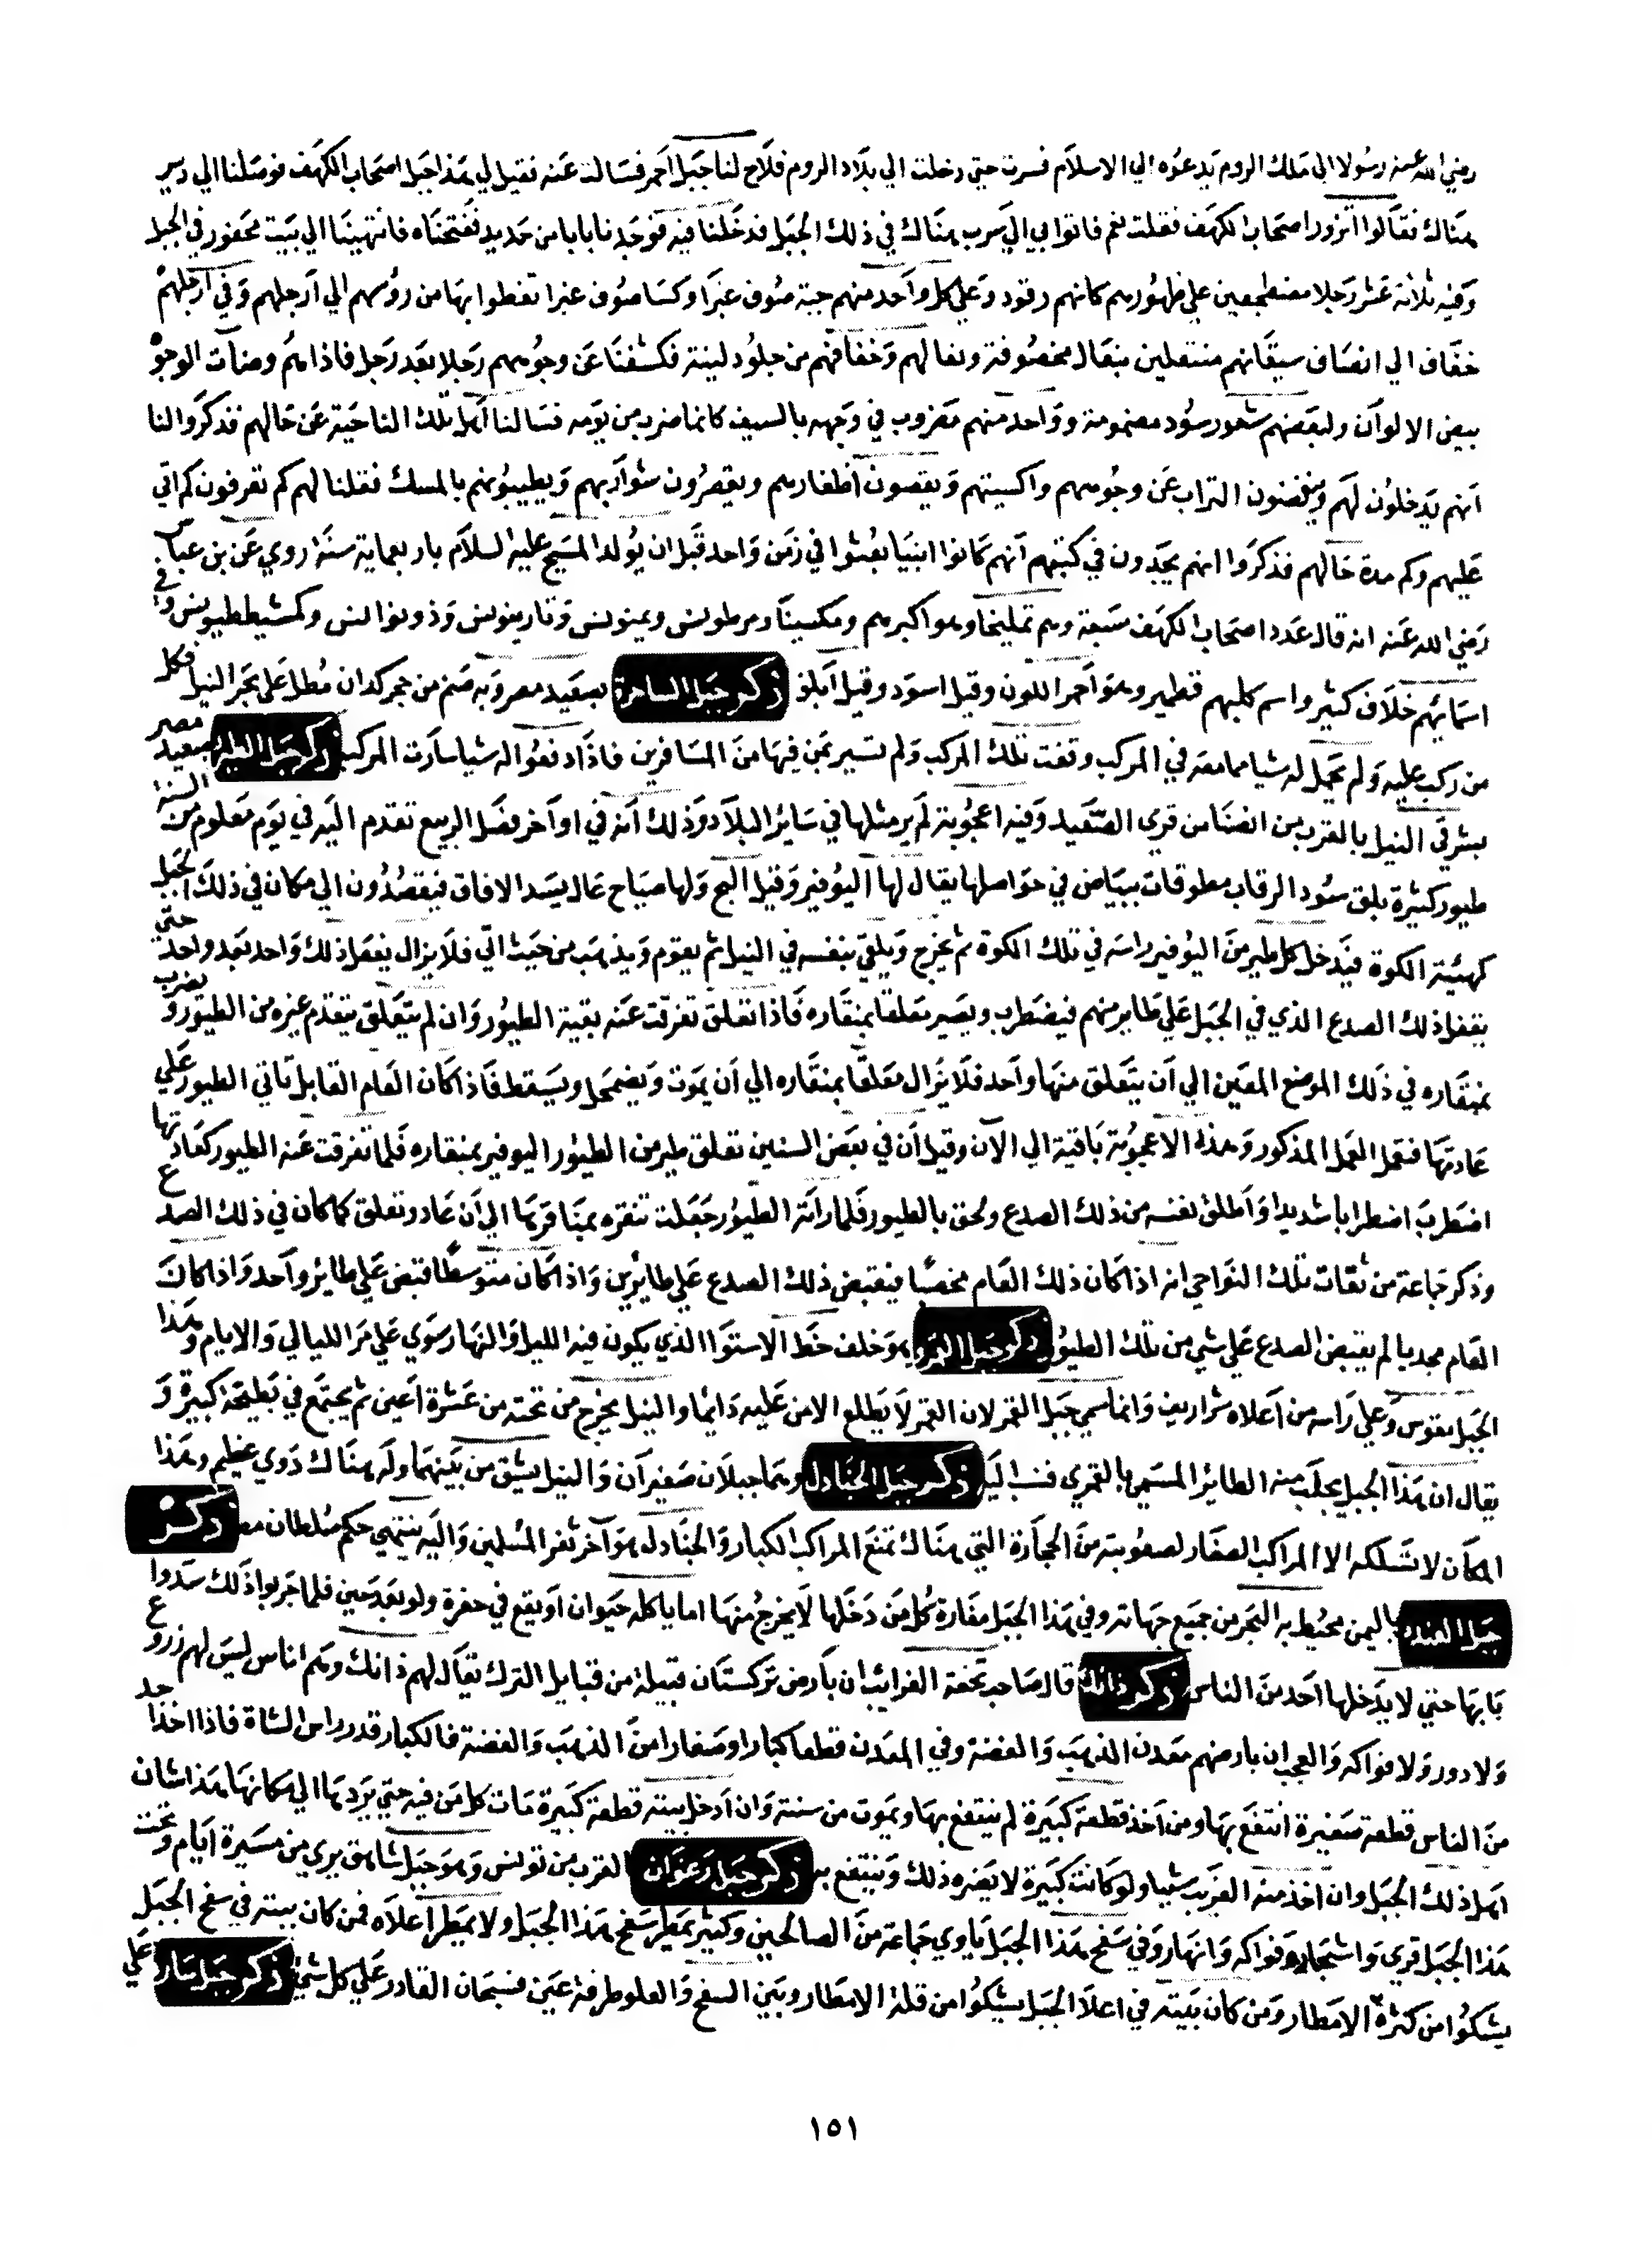 رضي الله عنه رسولا الى ملك الروم يدعوه الي الاسلام فسرت حتى دخلت الي بلاد الروم فلاح لنا جبل احمر فسالت عنه فقيل لي هذا جبل اصحاب الكهف فوصلنا الي دير
هناك فقالوا اتزوروا اصحاب الكهف فقلت نعم فاتوا بي الي سرب هناك في ذلك الجبل فدخلنا فيه فوجدنا بابا من حديد ففتحناه فانتهينا الي بيت محفور في الجبل
وفيه ثلاثة عشر رجلا مضطجعين علي ظهورهم كانهم رقود وعلي كل واحد منهم جبة صوف غبرا وكسا صوف غبرا تغطوا بها من رؤسهم الي ارجلهم وفي ارجلهم
خفاف الي انصاف سيقانهم منتعلين بنعال مخصوفة ونعالهم وخفافهم من جلود لينة فكشفنا عن وجوههم رجلا بعد رجل فاذا هم وضات الوجوه
بيض الالوان ولبعضهم شعور سود مضمومة وواحد منهم مضروب في وجهه بالسيف كانما ضرب من يومه فسالنا اهل تلك الناحية عن حالهم فذكروا لنا
انهم يدخلون لهم وينفضون التراب عن وجوههم واكسيتهم ويقصون اظفارهم ويقصرون شواربهم ويطيبونهم بالمسك فقلنا لهم كم تعرفون كم اتي
عليهم وكم مدة حالهم فذكروا انهم يجدون في كتبهم انهم كانوا انبيا بعثوا في زمن واحد قبل ان يولد المسيح عليه السلام باربعماية سنة وروي عن بن عباس
رضي الله عنه انه قال عدد اصحاب الكهف سبعة وهم تمليخا وهو اكبرهم ومكسينا ومرطونس وينونس وذونوانس وكشيططيونس وفي
اسمائهم خلاف كثير واسم كلبهم قطمير وهو احمر اللون وقيل اسود وقيل ابلق ذكر جبل الساحرة بصعيد مصر وبه صنم من حجر كدان مطل علي بحر النيل فكل
من ركب عليه ولم يحمل له شيا مما معه في المركب وقفت تلك المركب ولم تسير بمن فيها من المسافرين فاذا دفعوا له شيا سارت المركب ذكر جبل الطير بصعيد مصر
بشرقي النيل بالقرب من انصنا من قري الصعيد وفيه اعجوبة لم ير مثلها في سائر البلاد وذلك انه في اواخر فصل الربيع تقدم اليه في يوم معلوم من السنة
طيور كثيرة بلق سود الرقاب مطوقات ببياض في حواصلها يقال لها اليوفير وقيل البج ولها صياح عال يسد الافاق فيقصدون الي مكان في ذلك الجبل
كهيئة الكوة فيدخل كل طير من اليوفير راسه في تلك الكوة ثم يخرج ويلقي بنفسه في النيل ثم يعوم ويذهب من حيث اتي فلا يزال يفعل ذلك واحد بعد واحد حتى
يقفل ذلك الصدع الذي في الجبل علي طاير منهم فيضطرب ويصير معلقا بمنقاره فاذا تعلق تفرقت عنه بقية الطيور وان لم يتعلق يتقدم غيره من الطيور ويضرب
بمنقاره في ذلك الموضع المعين الي ان يتعلق منها واحد فلا يزال معلقا بمنقاره الي ان يموت ويضمحل ويسقط فاذا كان العام القابل تاتي الطيور علي
عادتها فتعمل العمل المذكور وهذه الاعجوبة باقية الي الآن وقيل ان في بعض السنين تعلق طير من الطيور اليوفير بمنقاره فلما تفرقت عنه الطيور كعادتها
اضطرب اضطرابا شديدا واطلق نفسه من ذلك الصدع ولحق بالطيور فلما راته الطيور جعلت تنقره بمناقرها الي ان عاد وتعلق كما كان في ذلك الصدع
وذكر جماعة من ثقات تلك النواحي انه اذا كان ذلك العام مخصبا فيقبض ذلك الصدع علي طائرين واذا كان متوسطا قبض علي طائر واحد واذا كان
العام مجدبا لم يقبض الصدع علي شي من تلك الطيور ذكر جبل القمر هو خلف خط الاستوا الذي يكون فيه الليل والنهار سوي علي مر الليالي والايام وهذا
الجبل مقوس وعلي راسه من اعلاه شراريف وانما سمي جبل القمر لان القمر لا يطلع الا من عليه دائما والنيل يخرج من تحته من عشرة اعين ثم يجتمع في بطيحة كبيرة و
يقال ان هذا الجبل يجلب منه الطائر المسمى بالقمري فنسب اليه ذكر جبل الجنادل وهما جبلان صغيران والنيل يشق من بينهما وله هناك دوي عظيم وهذا
المكان لا تسلكه الا المراكب الصغار لصعوبته من الحجارة التي هناك تمنع المراكب الكبار والجنادل هو آخر ثغر المسلمين واليه ينتهي حكم سلطان مصر ذكر
جبل باليمن محيط به البحر من جميع جهاته وفي هذا الجبل مغارة كل من دخلها لا يخرج منها اما ياكله حيوان او يقع في حفرة ولو بعد حين فلما جربوا ذلك سدوا
بابها حتي لا يدخلها احد من الناس ذكر ذانك قال صاحب تحفة الغرائب ان بارض تركستان قبيلة من قبايل الترك يقال لهم ذانك وهم اناس ليس لهم زروع
ولا دور ولا فواكه والعجب ان بارضهم معدن الذهب والفضة وفي المعدن قطعا كبارا وصغارا من الذهب والفضة فالكبار قدر راس الشاة فاذا اخذ احد
من الناس قطعة صغيرة انتفع بها ومن اخذ قطعة كبيرة لم ينتفع بها ويموت من سنته وان ادخل بيته قطعة كبيرة مات كل من فيه حتي يردها الي مكانها هذا شان
اهل ذلك الجبل وان اخذ منه الغريب شيا ولو كانت كبيرة لا يضره ذلك وينتفع به ذكر جبل زغوان بالقرب من تونس وهو جبل شاهق يري من مسيرة ايام وتحت
هذا الجبل قري واشجار وفواكه وانهار وفي سفح هذا الجبل ياوي جماعة من الصالحين وكثير يمطر سفح هذا الجبل ولا يمطر اعلاه فمن كان بيته في سفح الجبل
يشكوا من كثرة الامطار ومن كان بيته في اعلا الجبل يشكوا من قلة الامطار وبين السفح والعلو طرفة عين فسبحان القادر علي كل شي ذكر جبل علي
١٥١